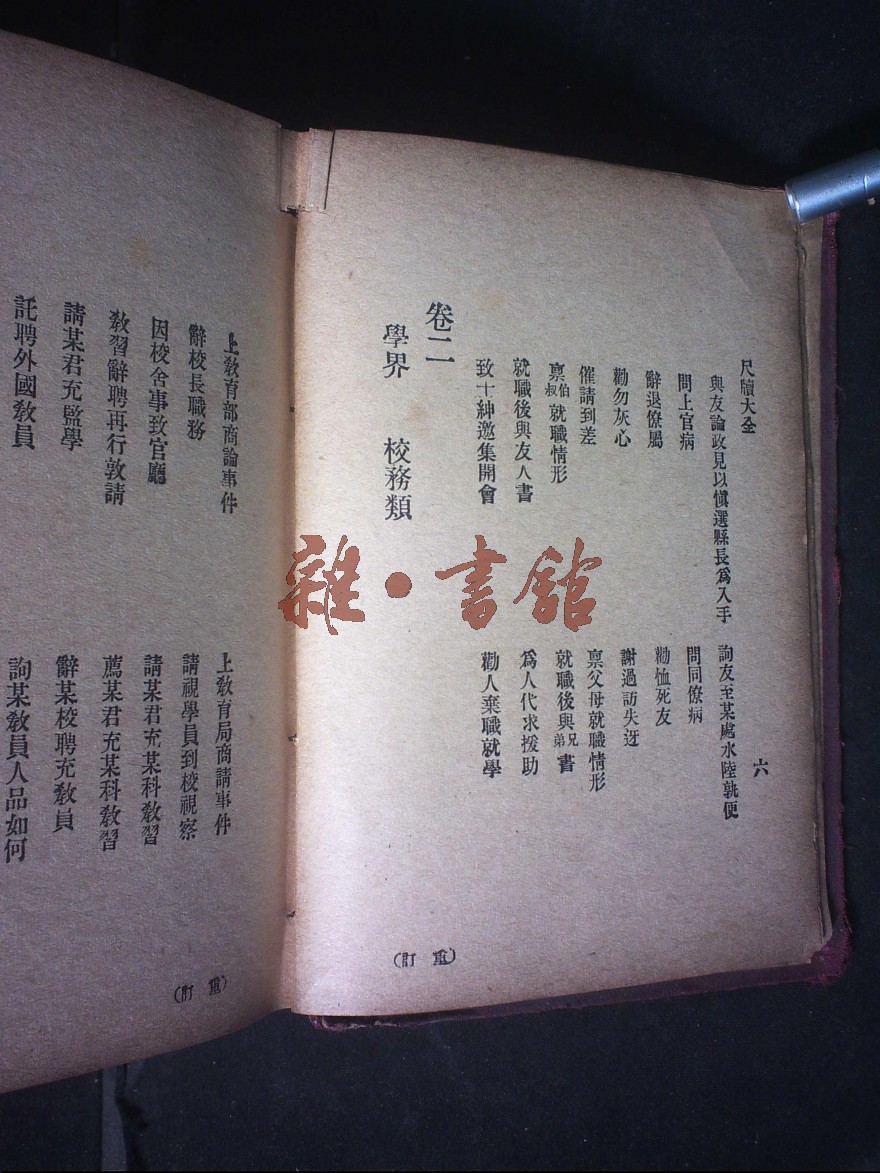 尺牘大全
六
與友論政見以愼選縣長爲入手
詢友至某處水陸孰便
問上官病
問同僚病
辭退僚屬
勸恤死友
勸勿灰心
謝過訪失迓
催請到差
稟父母就職情形
稟伯叔就職情形
就職後與兄弟書
就職後與友人書
爲人代求援助
致士紳邀集開會
勸人棄職就學
卷二
學界 校務類
(重訂)
上敎育部商論事件
上敎育局商請事件
辭校長職務
請視學員到校視察
因校舍事致官廳
請某君充某科敎習
敎習辭聘再行敦請
薦某君充某科敎習
請某君充監學
辭某校聘充敎員
託聘外國敎員
詢某敎員人品如何
(重訂)
雜·書館